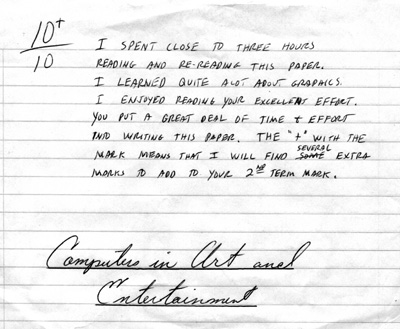 10+
10
I SPENT CLOSE TO THREE HOURS
READING AND RE-READING THIS PAPER.
I LEARNED QUITE A LOT ABOUT GRAPHICS.
I ENJOYED READING YOUR EXCELLENT EFFORT.
YOU PUT A GREAT DEAL OF TIME & EFFORT
INTO WRITING THIS PAPER. THE "+" WITH THE
MARK MEANS THAT I WILL FIND SEVERAL EXTRA
MARKS TO ADD TO YOUR 2ND TERM MARK.
Computers in Art and
Entertainment